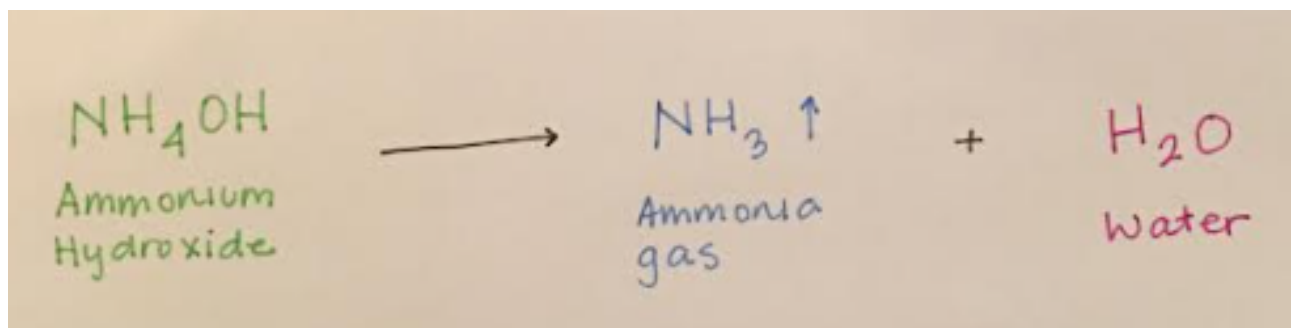 NH₄OH → NH₃ ↑ + H₂O
Ammonium Hydroxide
Ammonia gas
Water